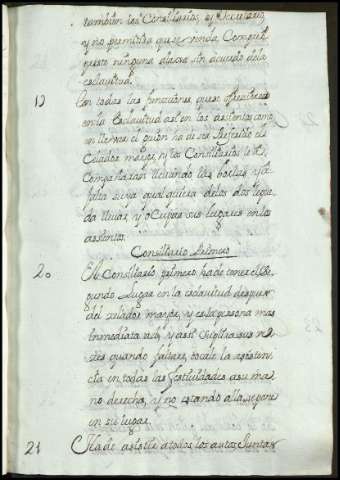 tambien los Consiliarios, y Secretario
y no permitira que se rinda Con
puesto ninguna alaxa sin acuerdo dela
esclavitud.
19 En todas las funciones que se ofrecieren
en la Esclavitud asi en los asientos como
en llevar el guion ha de ser Preferido el
Celador maior, y los Consiliarios le
Compañaran llevando las borlas, y si
falta suia qualquiera delos dos le pue
da llevar, y oCupar sus lugares en los
asientos.
Consiliario Primero
20 El Consiliario primero hade tener el Se
gundo Lugar en la esclavitud despues
del zelador maior, y es la persona mas
Inmediata a el, y asi suplira sus ve
zes quando faltare, tocale la asisten
cia en todas las festividades a su ma
no derecha, y no estando alla se pone
en su lugar.
21 Ha de asistir a todos los autos Juntas